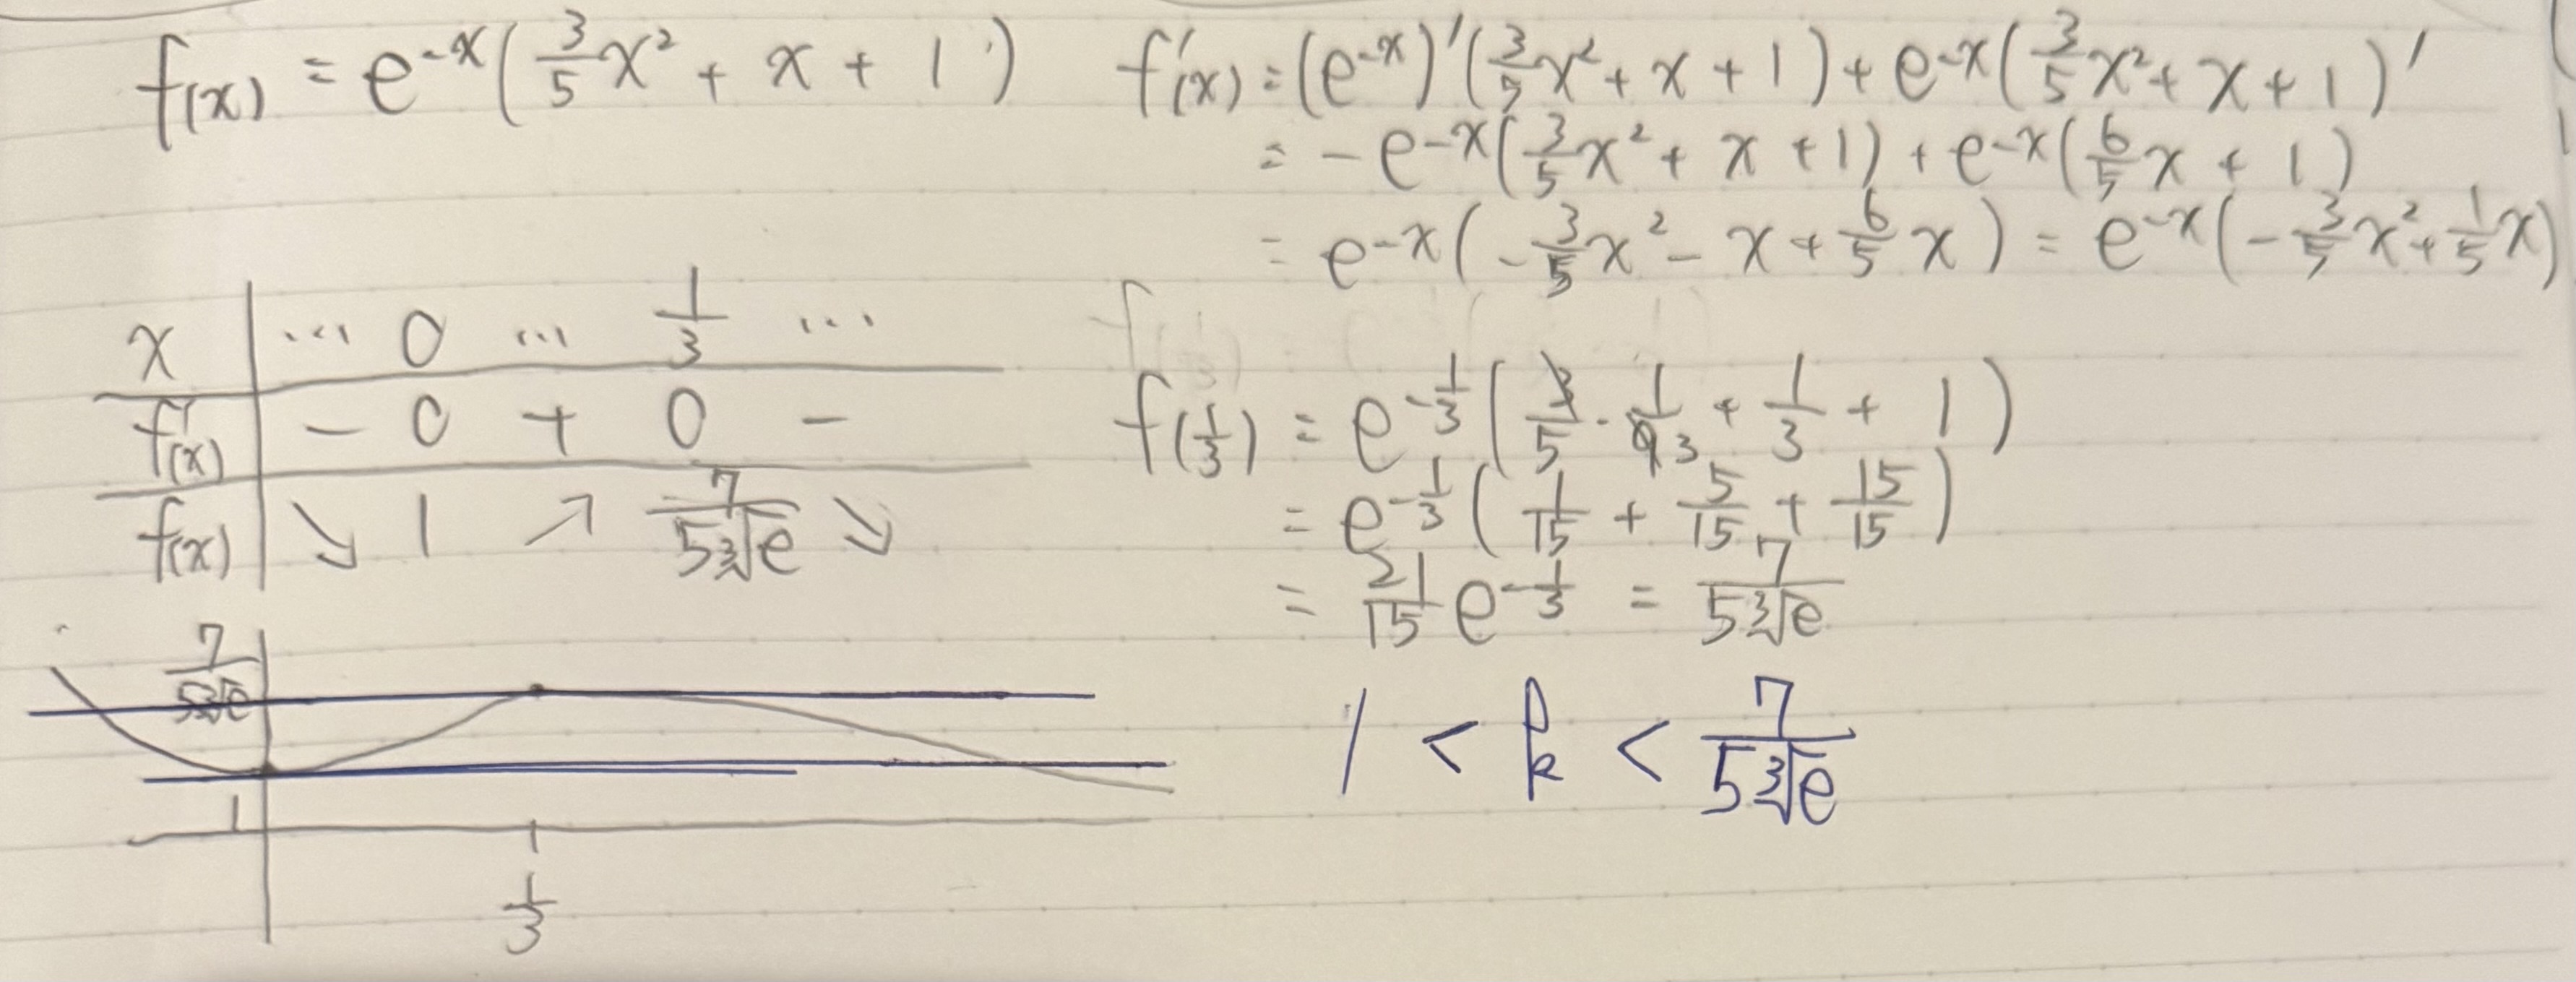 f(x) = e^{-x}(3/5 x² + x + 1)
f'(x) = (e^{-x})'(3/5 x² + x + 1) + e^{-x}(3/5 x² + x + 1)'
= -e^{-x}(3/5 x² + x + 1) + e^{-x}(6/5 x + 1)
= e^{-x}(-3/5 x² - x + 6/5 x) = e^{-x}(-3/5 x² + 1/5 x)
x | ... 0 ... 1/3 ...
f'(x) | - 0 + 0 -
f(x) | ↘ 1 ↗ 7/(5∛e) ↘
f(1/3) = e^{-1/3}(3/5 · 1/9 3 + 1/3 + 1)
= e^{-1/3}(1/15 + 5/15 + 15/15)
= 21/15 e^{-1/3} = 7/(5∛e)
7/(5∛e)
1
1/3
1 < k < 7/(5∛e)